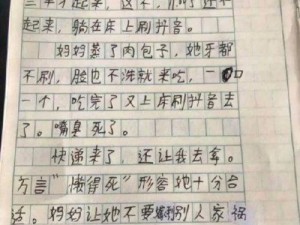 三平才起来，这不，
起来，躺在床上刷抖音。
妈妈蒸了肉包子，她牙都
不刷，脸也不洗就来吃，一口
一个，吃完了又上床刷抖音去
了。嘴臭死了。
快递来了，还让我去拿。
方言“懒得死”形容她十分合
适。妈妈让她不要嫁别人家祸